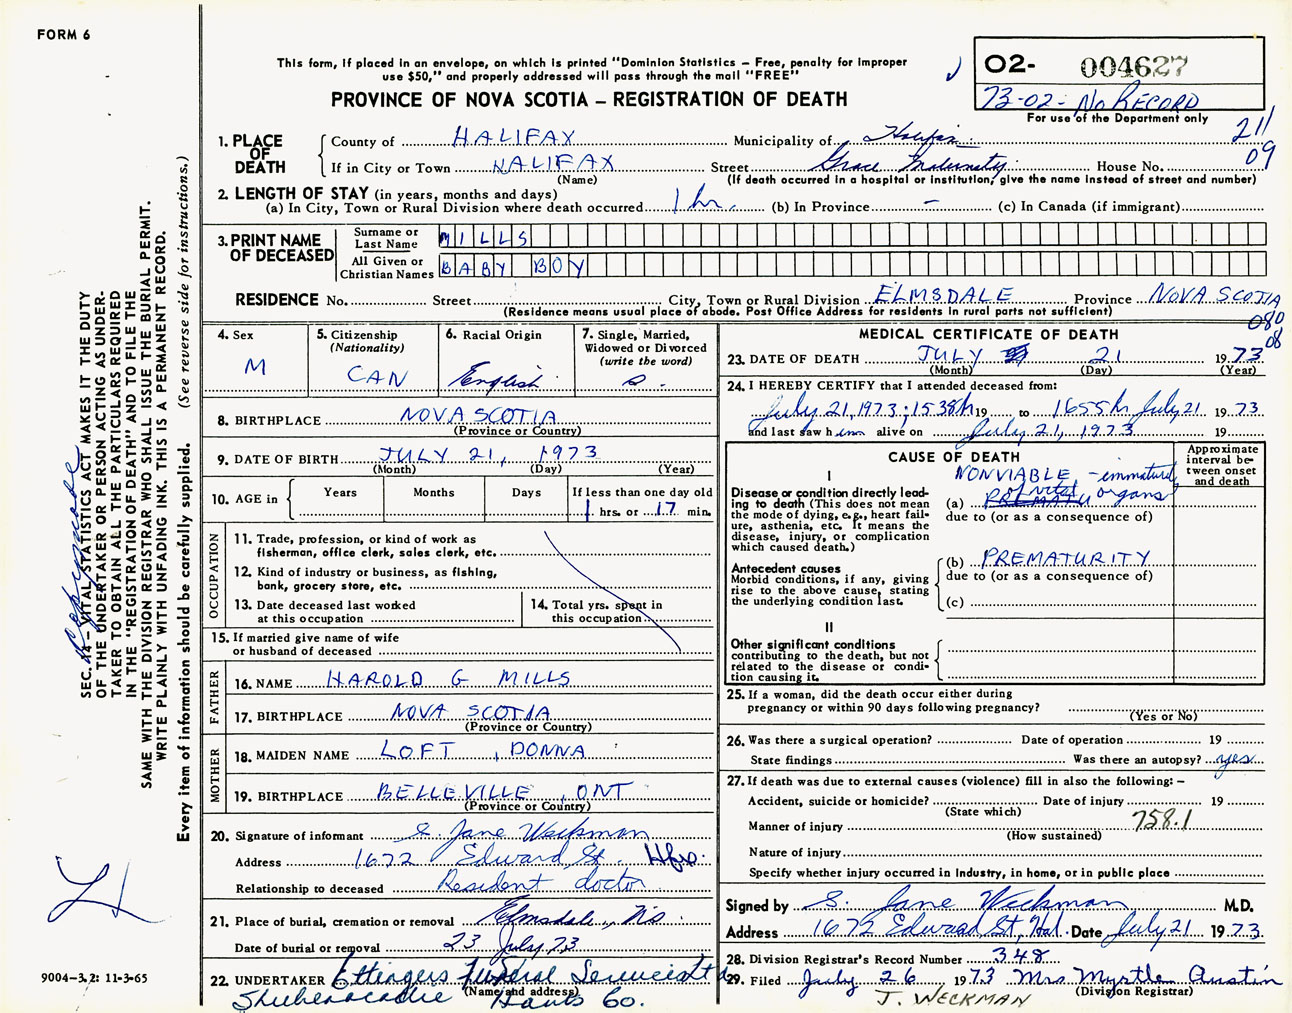 FORM 6
This form, if placed in an envelope, on which is printed "Dominion Statistics – Free, penalty for improper
use $50," and properly addressed will pass through the mail "FREE"
PROVINCE OF NOVA SCOTIA – REGISTRATION OF DEATH
02- 004627
73-02- No RECORD
For use of the Department only
211
09
1. PLACE OF DEATH
County of HALIFAX Municipality of Halifax
If in City or Town HALIFAX Street Grace Maternity House No.
(Name) (If death occurred in a hospital or institution, give the name instead of street and number)
2. LENGTH OF STAY (in years, months and days)
(a) In City, Town or Rural Division where death occurred 1 hr. (b) In Province – (c) In Canada (if immigrant)
3. PRINT NAME OF DECEASED
Surname or Last Name MILLS
All Given or Christian Names BABY BOY
RESIDENCE No. Street City, Town or Rural Division ELMSDALE Province NOVA SCOTIA
(Residence means usual place of abode. Post Office Address for residents in rural parts not sufficient)
080
08
4. Sex M
5. Citizenship (Nationality) CAN
6. Racial Origin English
7. Single, Married, Widowed or Divorced (write the word) S.
8. BIRTHPLACE NOVA SCOTIA
(Province or Country)
9. DATE OF BIRTH JULY 21, 1973
(Month) (Day) (Year)
10. AGE in Years Months Days If less than one day old
1 hrs. or 17 min.
OCCUPATION
11. Trade, profession, or kind of work as
fisherman, office clerk, sales clerk, etc.
12. Kind of industry or business, as fishing,
bank, grocery store, etc.
13. Date deceased last worked
at this occupation
14. Total yrs. spent in
this occupation
15. If married give name of wife
or husband of deceased
FATHER
16. NAME HAROLD G MILLS
17. BIRTHPLACE NOVA SCOTIA
(Province or Country)
MOTHER
18. MAIDEN NAME LOFT, DONNA
19. BIRTHPLACE BELLEVILLE, ONT
(Province or Country)
20. Signature of informant S. Jane Weckman
Address 1672 Edward St. Hfx.
Relationship to deceased Resident doctor
21. Place of burial, cremation or removal Elmsdale, NS
Date of burial or removal 23 July 73
22. UNDERTAKER Ettingers Funeral Service Ltd
(Name and address)
Shubenacadie Hants Co.
MEDICAL CERTIFICATE OF DEATH
23. DATE OF DEATH JULY 21 1973
(Month) (Day) (Year)
24. I HEREBY CERTIFY that I attended deceased from:
July 21, 1973; 1538h 19 to 1655h July 21 1973
and last saw him alive on July 21, 1973 19
CAUSE OF DEATH
Approximate interval between onset and death
I
NONVIABLE - immature
Disease or condition directly leading to death (This does not mean the mode of dying, e.g., heart failure, asthenia, etc. It means the disease, injury, or complication which caused death.)
(a) organs
due to (or as a consequence of)
Antecedent causes
Morbid conditions, if any, giving rise to the above cause, stating the underlying condition last.
(b) PREMATURITY
due to (or as a consequence of)
(c)
II
Other significant conditions
contributing to the death, but not related to the disease or condition causing it.
25. If a woman, did the death occur either during
pregnancy or within 90 days following pregnancy?
(Yes or No)
26. Was there a surgical operation? Date of operation 19
State findings Was there an autopsy? yes
27. If death was due to external causes (violence) fill in also the following: –
Accident, suicide or homicide? Date of injury 19
(State which)
Manner of injury 758.1
(How sustained)
Nature of injury
Specify whether injury occurred in industry, in home, or in public place
Signed by S. Jane Weckman M.D.
Address 1672 Edward St, Hal. Date July 21 1973
28. Division Registrar's Record Number 348
29. Filed July 26 1973 Mrs Myrtle Austin
(Division Registrar)
J. WECKMAN
SEC. 14 – VITAL STATISTICS ACT MAKES IT THE DUTY
OF THE UNDERTAKER OR PERSON ACTING AS UNDER-
TAKER TO OBTAIN ALL THE PARTICULARS REQUIRED
IN THE "REGISTRATION OF DEATH" AND TO FILE THE
SAME WITH THE DIVISION REGISTRAR WHO SHALL ISSUE THE BURIAL PERMIT.
WRITE PLAINLY WITH UNFADING INK. THIS IS A PERMANENT RECORD.
Every item of information should be carefully supplied. (See reverse side for instructions.)
9004-3,2: 11-3-65